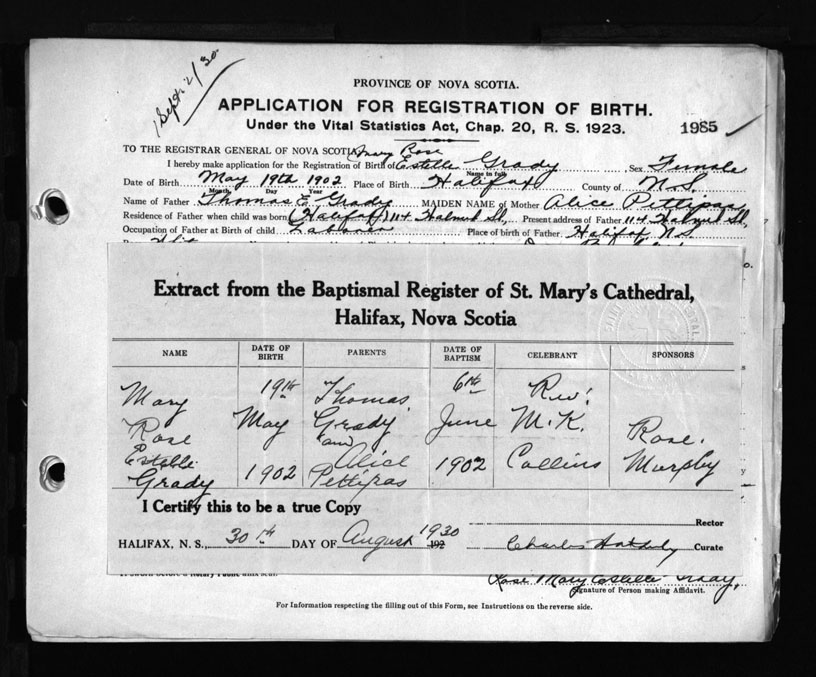 Sept 2/30
PROVINCE OF NOVA SCOTIA.
APPLICATION FOR REGISTRATION OF BIRTH.
Under the Vital Statistics Act, Chap. 20, R. S. 1923.
1985
TO THE REGISTRAR GENERAL OF NOVA SCOTIA Mary Rose
I hereby make application for the Registration of Birth of Estelle Grady Sex Female
Name in full
Date of Birth May 19th 1902 Place of Birth Halifax County of N.S.
Month Day Year
Name of Father Thomas E Grady MAIDEN NAME of Mother Alice Pettipas
Residence of Father when child was born (Halifax) 114 St, Present address of Father 114 St,
Occupation of Father at Birth of child Laborer Place of birth of Father Halifax N.S.
Extract from the Baptismal Register of St. Mary's Cathedral,
Halifax, Nova Scotia
NAME DATE OF BIRTH PARENTS DATE OF BAPTISM CELEBRANT SPONSORS
Mary 19th Thomas 6th Rev.
Rose May Grady June M.K. Rose
and
Estelle Alice
Grady 1902 Pettipas 1902 Collins Murphy
I Certify this to be a true Copy
Rector
HALIFAX, N. S., 30th DAY OF August 1930 192
Charles Curate
Rose Mary Estelle Grady,
Signature of Person making Affidavit.
For Information respecting the filling out of this Form, see Instructions on the reverse side.